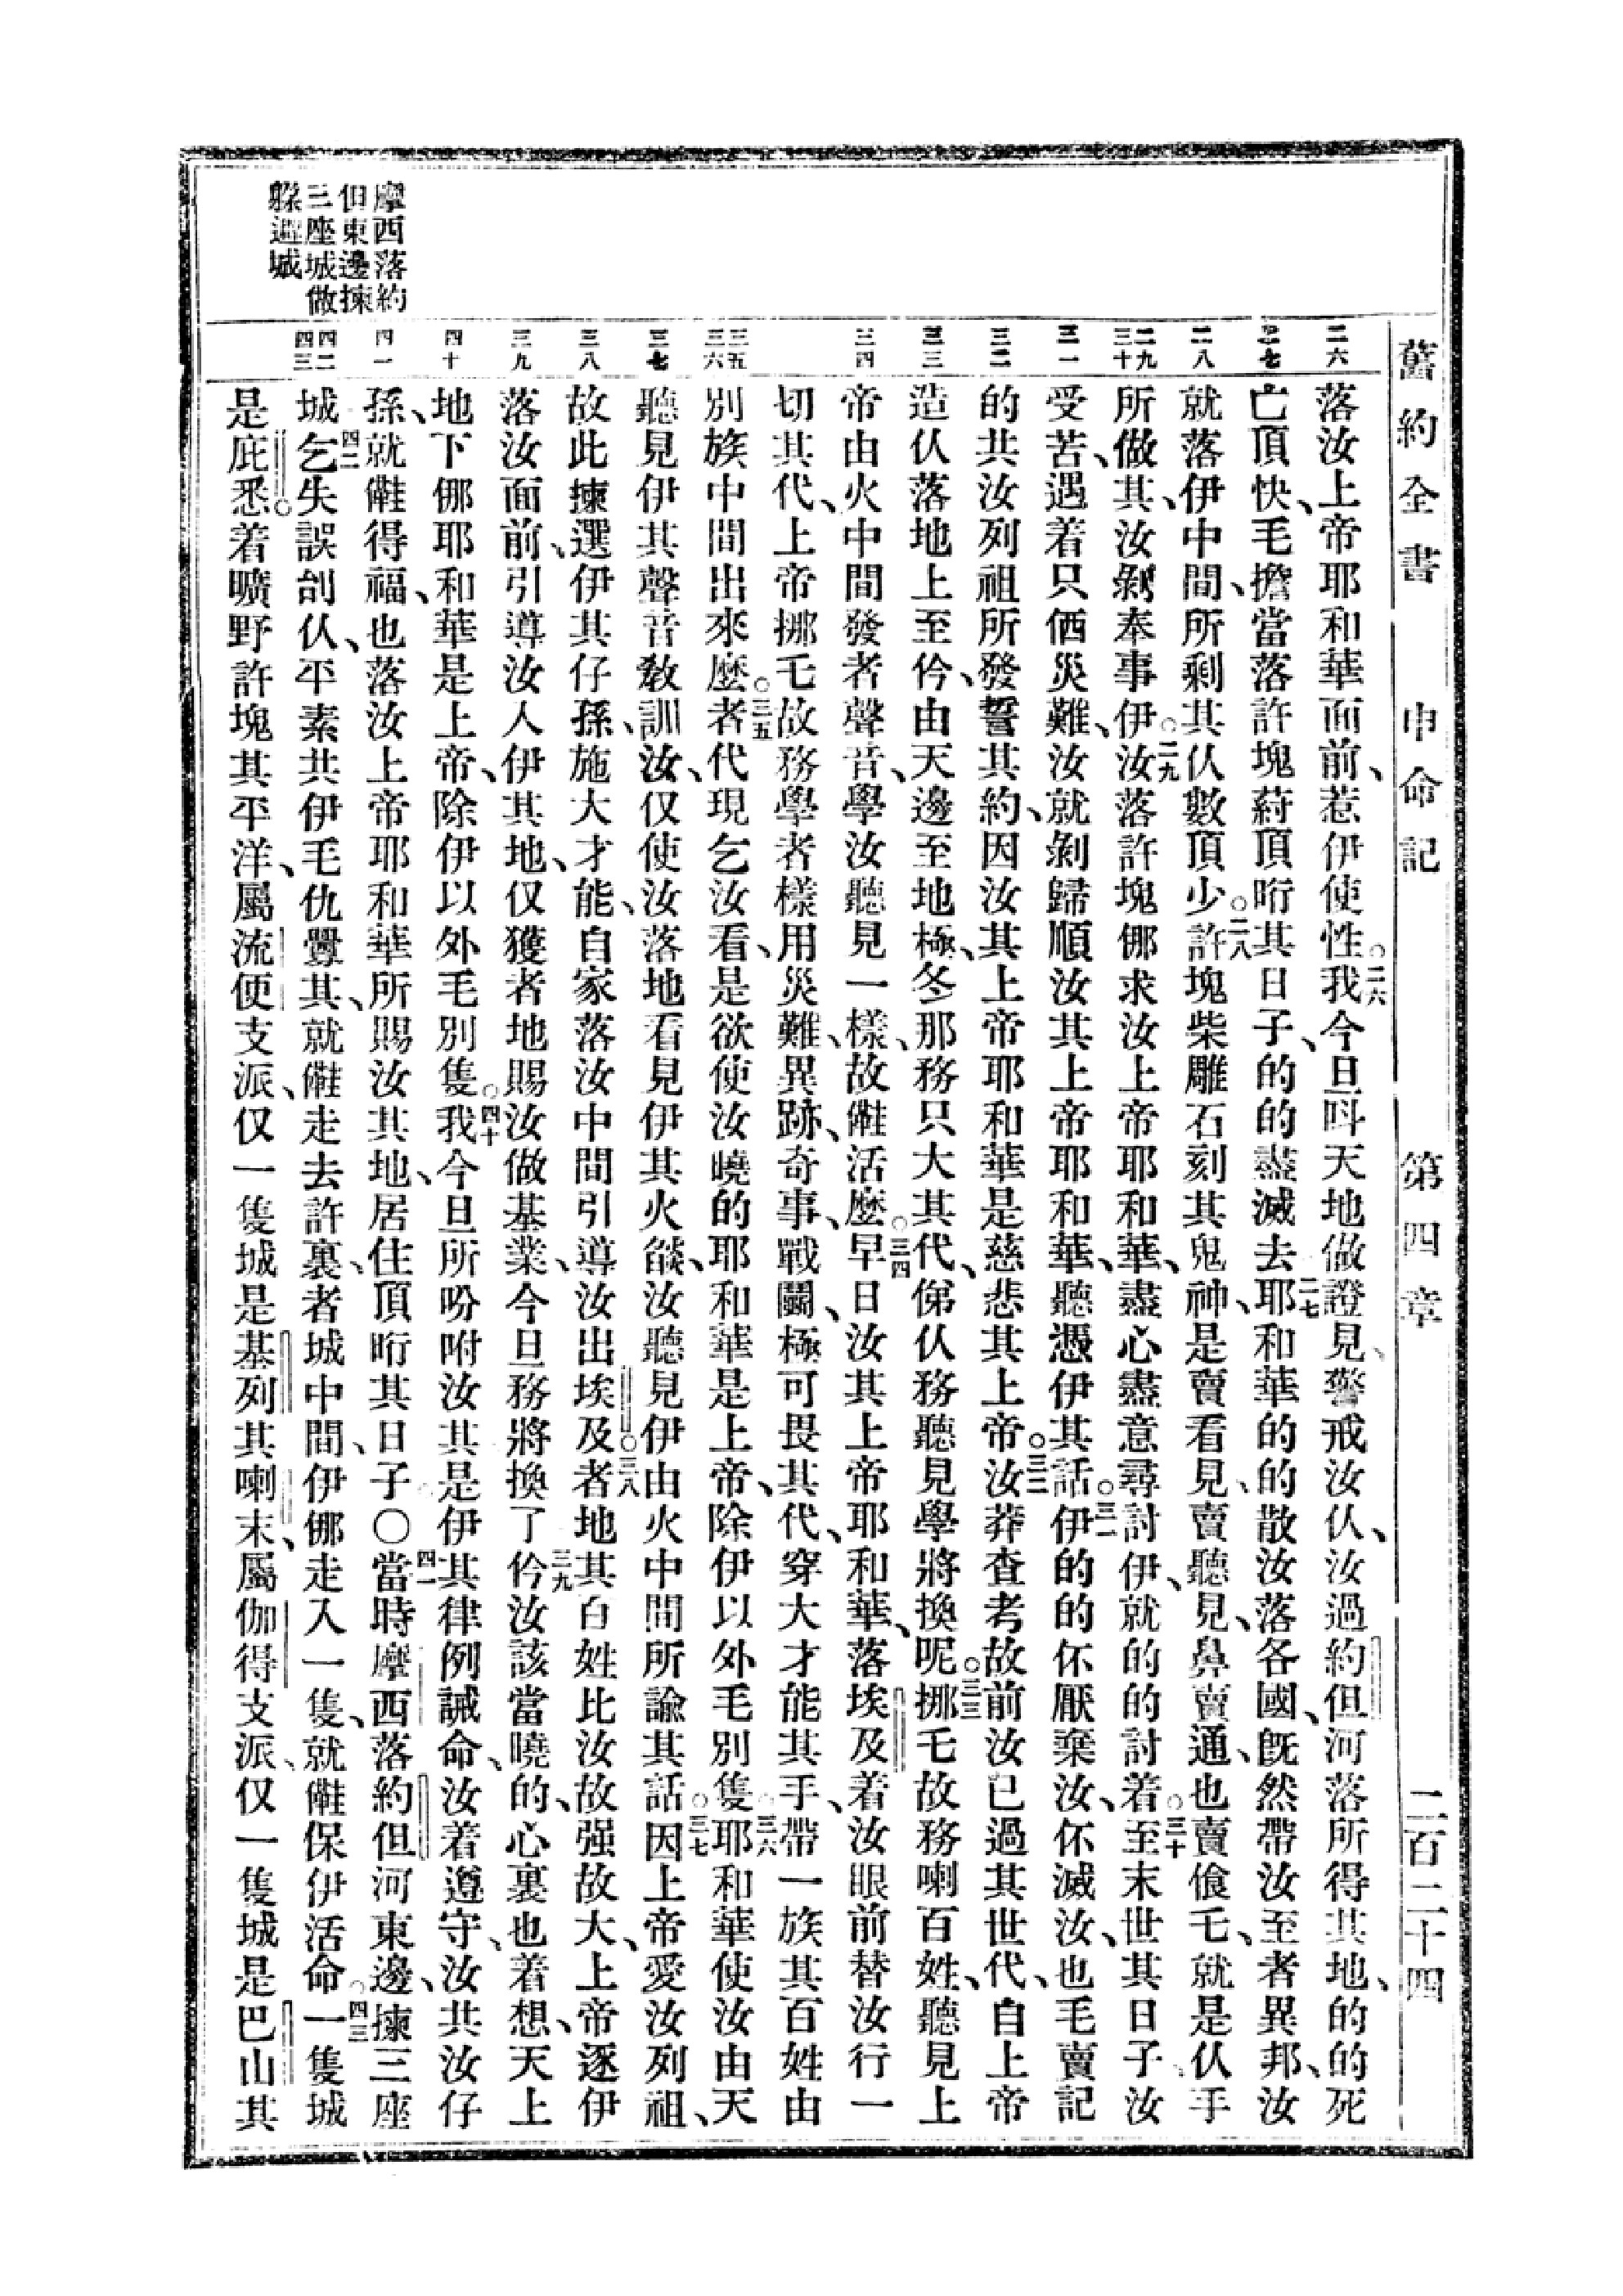 舊約全書 申命記 第四章 二百二十四
摩西落約
但東邊揀
三座城做
躲避城
二六
二七
二八
二九
三十
三一
三二
三三
三四
三五
三六
三七
三八
三九
四十
四一
四二
四三
落汝上帝耶和華面前、惹伊使性。二六我今旦呌天地做證見、警戒汝仸、汝過約但河落所得其地、的的死
亡頂快、毛擔當落許塊葑頂晍其日子、的的盡滅去、二七耶和華的的散汝落各國、旣然帶汝至者異邦、汝
就落伊中間、所剩其仸數頂少。二八許塊柴雕石刻其鬼神、是賣看見、賣聽見、鼻賣通、也賣飡乇、就是仸手
所做其、汝剝奉事伊。二九汝落許塊㑚求汝上帝耶和華、盡心盡意尋討伊、就的的討着。三十至末世其日子、汝
受苦、遇着只㑚災難、汝就剝歸順汝其上帝耶和華、聽憑伊其話。三一伊的的伓厭棄汝、伓滅汝、也毛賣記
的共汝列祖所發誓其約、因汝其上帝耶和華是慈悲其上帝。三二汝莽查考故前汝已過其世代、自上帝
造仸落地上至仱、由天邊至地極、冬那務只大其代、俤仸務聽見學將換呢。三三挪乇故務喇百姓、聽見上
帝由火中間發者聲音、學汝聽見一樣、故㒕活麽。三四早日汝其上帝耶和華、落埃及着汝眼前替汝行一
切其代、上帝挪乇故務學者樣用災難、異跡、奇事、戰鬭、極可畏其代、穿大才能其手、帶一族其百姓由
別族中間出來麽。三五者代現乞汝看、是欲使汝曉的耶和華是上帝、除伊以外毛別隻。三六耶和華使汝由天
聽見伊其聲音敎訓汝、仅使汝落地看見伊其火燄、汝聽見伊由火中間所諭其話。三七因上帝愛汝列祖、
故此揀選伊其仔孫、施大才能、自家落汝中間引導汝出埃及。三八者地其百姓比汝故强故大、上帝逐伊
落汝面前、引導汝入伊其地、仅獲者地賜汝做基業、今旦務將換了。三九仱汝該當曉的、心裏也着想、天上
地下㑚耶和華是上帝、除伊以外毛別隻。四十我今旦所吩咐汝其是伊其律例誡命、汝着遵守、汝共汝仔
孫、就㒕得福、也落汝上帝耶和華所賜汝其地、居住頂晍其日子〇四一當時摩西落約但河東邊、揀三座
城、四二乞失誤刣仸、平素共伊毛仇釁其、就㒕走去許裏、者城中間、伊㑚走入一隻、就㒕保伊活命。四三一隻城
是庇悉。着曠野許塊其平洋、屬流便支派、仅一隻城是基列其喇末、屬伽得支派、仅一隻城是巴山其